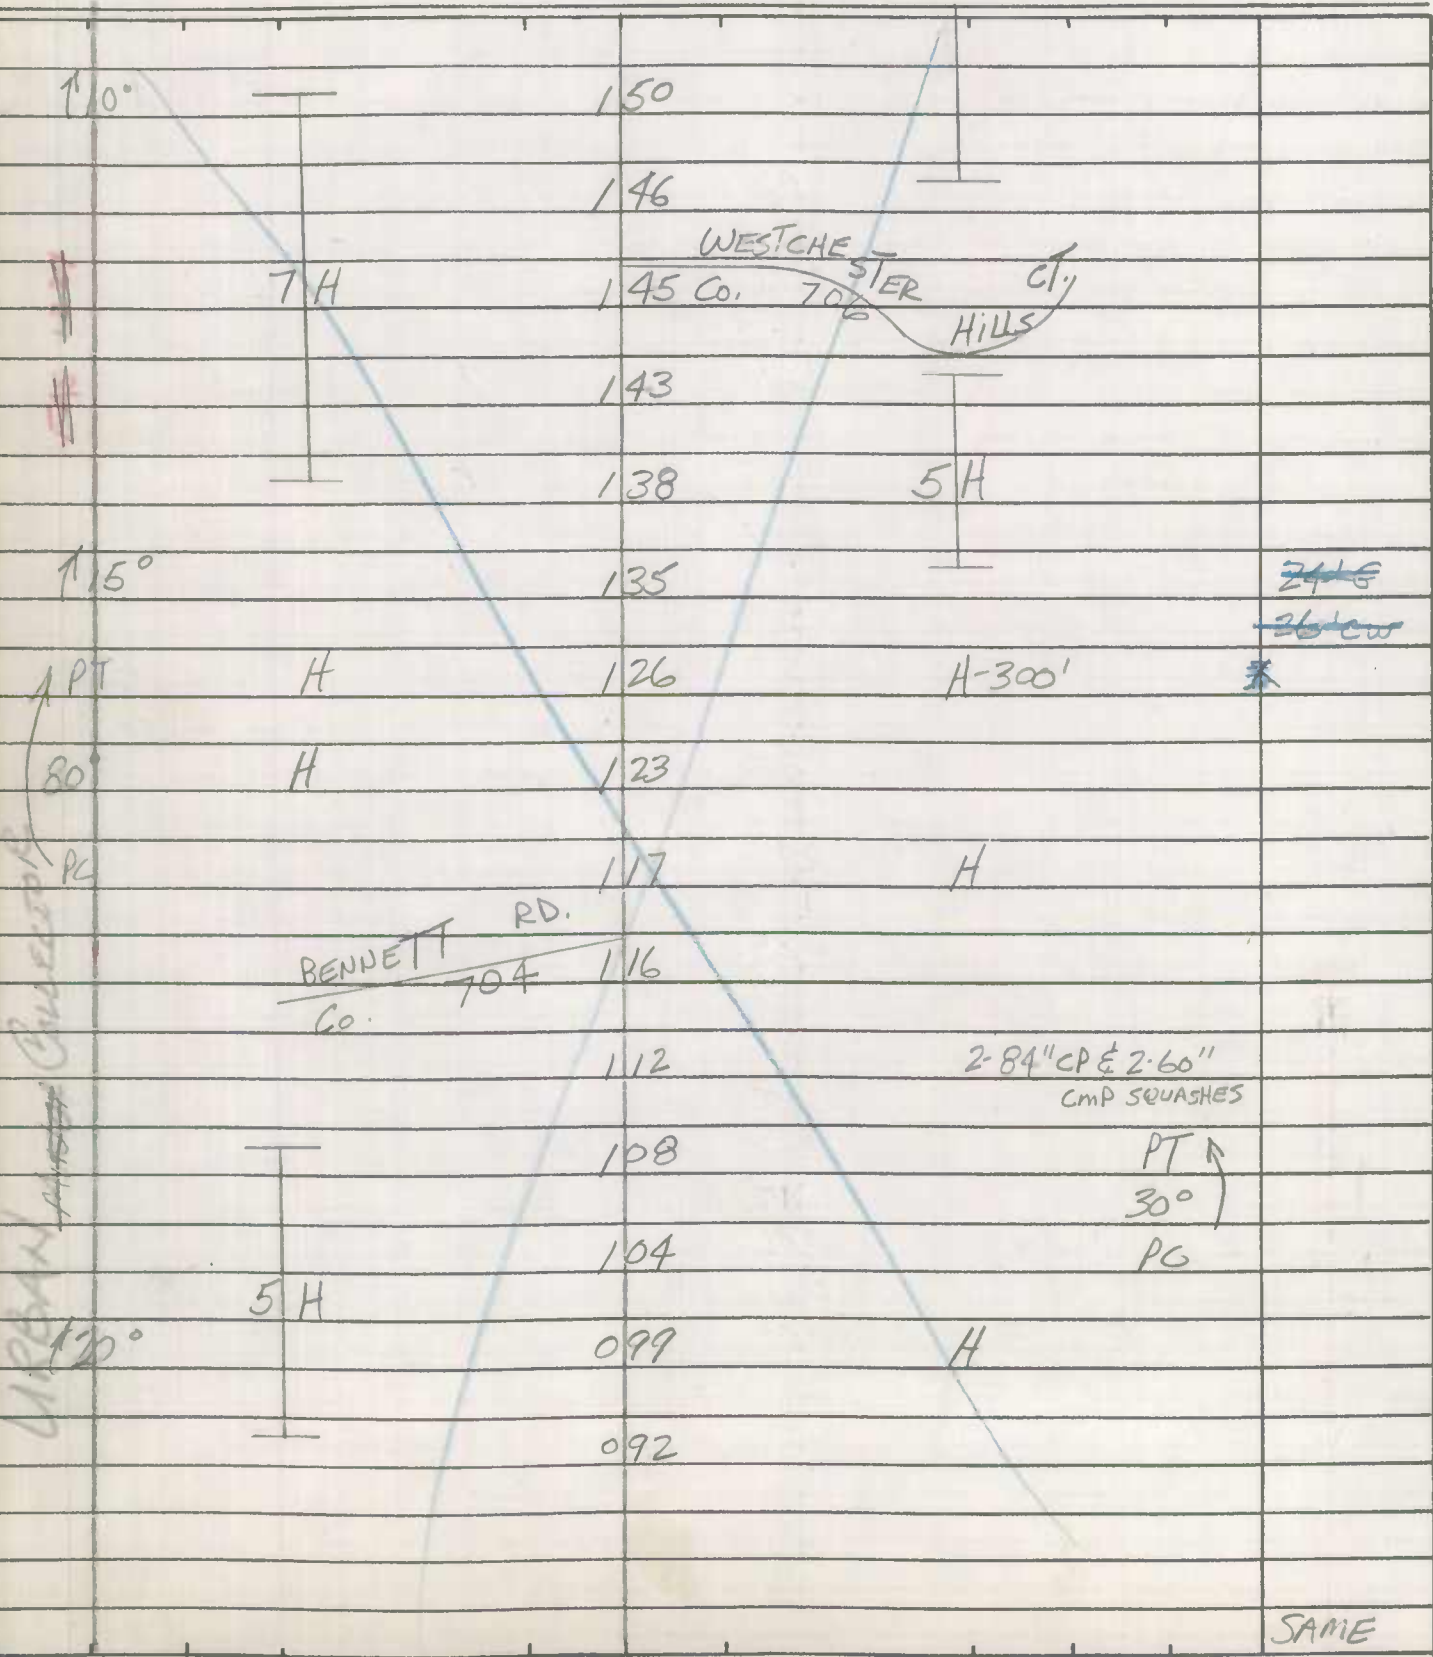 ↑10° 150
146
WESTCHESTER HILLS CT.
7 H 145 Co. 706
143
138 5 H
↑15° 135 24' G
36' CW
PT H 126 H-300' *
80° H 123
PC 117 H
BENNETT RD.
704 116
Co.
112 2-84" CP & 2-60"
CMP SQUASHES
108 PT
30°
104 PC
5 H
↑20° 099 H
092
SAME
URBAN COLLECTOR